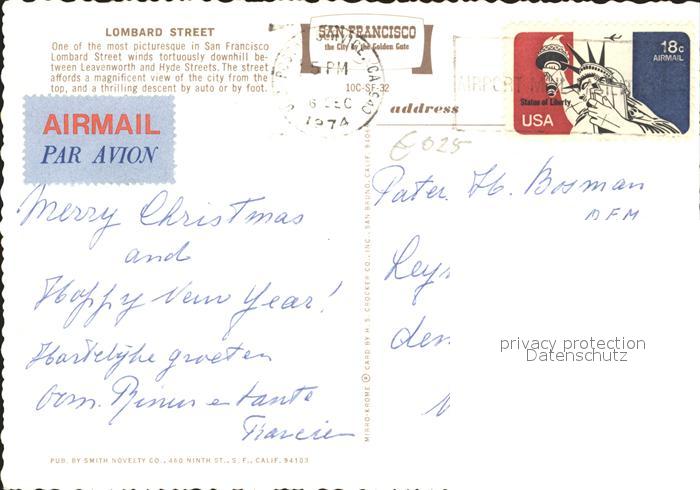 LOMBARD STREET
One of the most picturesque in San Francisco
Lombard Street winds tortuously downhill be-
tween Leavenworth and Hyde Streets. The street
affords a magnificent view of the city from the
top, and a thrilling descent by auto or by foot.
SAN FRANCISCO
the City by the Golden Gate
10C-SF-32
address
5 PM
6 DEC
1974
AIRPORT MAIL
18c
AIRMAIL
Statue of Liberty
USA
AIRMAIL
PAR AVION
€ 025
Merry Christmas
and
Happy New Year!
Hartelijke groeten
oom Rinus en tante
Pater H. Bosman
OFM
Leys
den
privacy protection
Datenschutz
MIRRO-KROME ® CARD BY H. S. CROCKER CO., INC., SAN BRUNO, CALIF. 94066
PUB. BY SMITH NOVELTY CO., 460 NINTH ST., S. F., CALIF. 94103